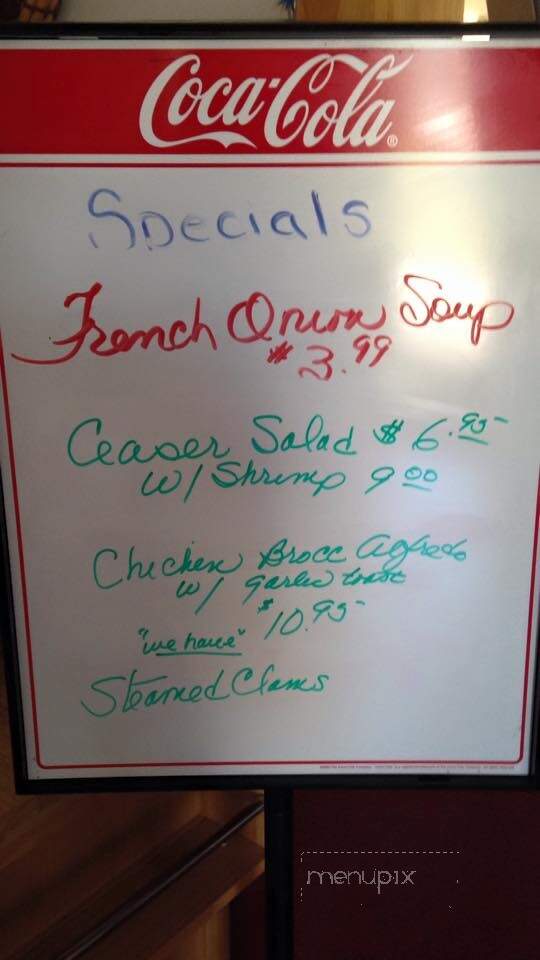 Coca-Cola®
Specials
French Onion Soup
$3.99
Ceaser Salad $6.95
w/ Shrimp 9 00
Chicken Brocc Alfredo
w/ garlic toast
$10.95
"we have"
Steamed Clams
menupix